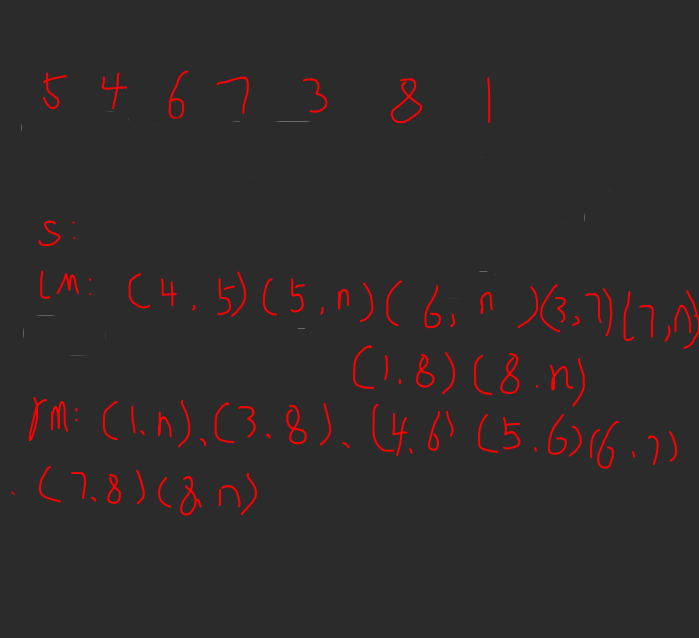 5 4 6 7 3 8 1
S:
LM: (4.5)(5,n)(6,n)(3,7)(7,n)
(1.8)(8.n)
rM: (1.n).(3.8).(4.6)(5.6)(6.7)
.(7.8)(8.n)